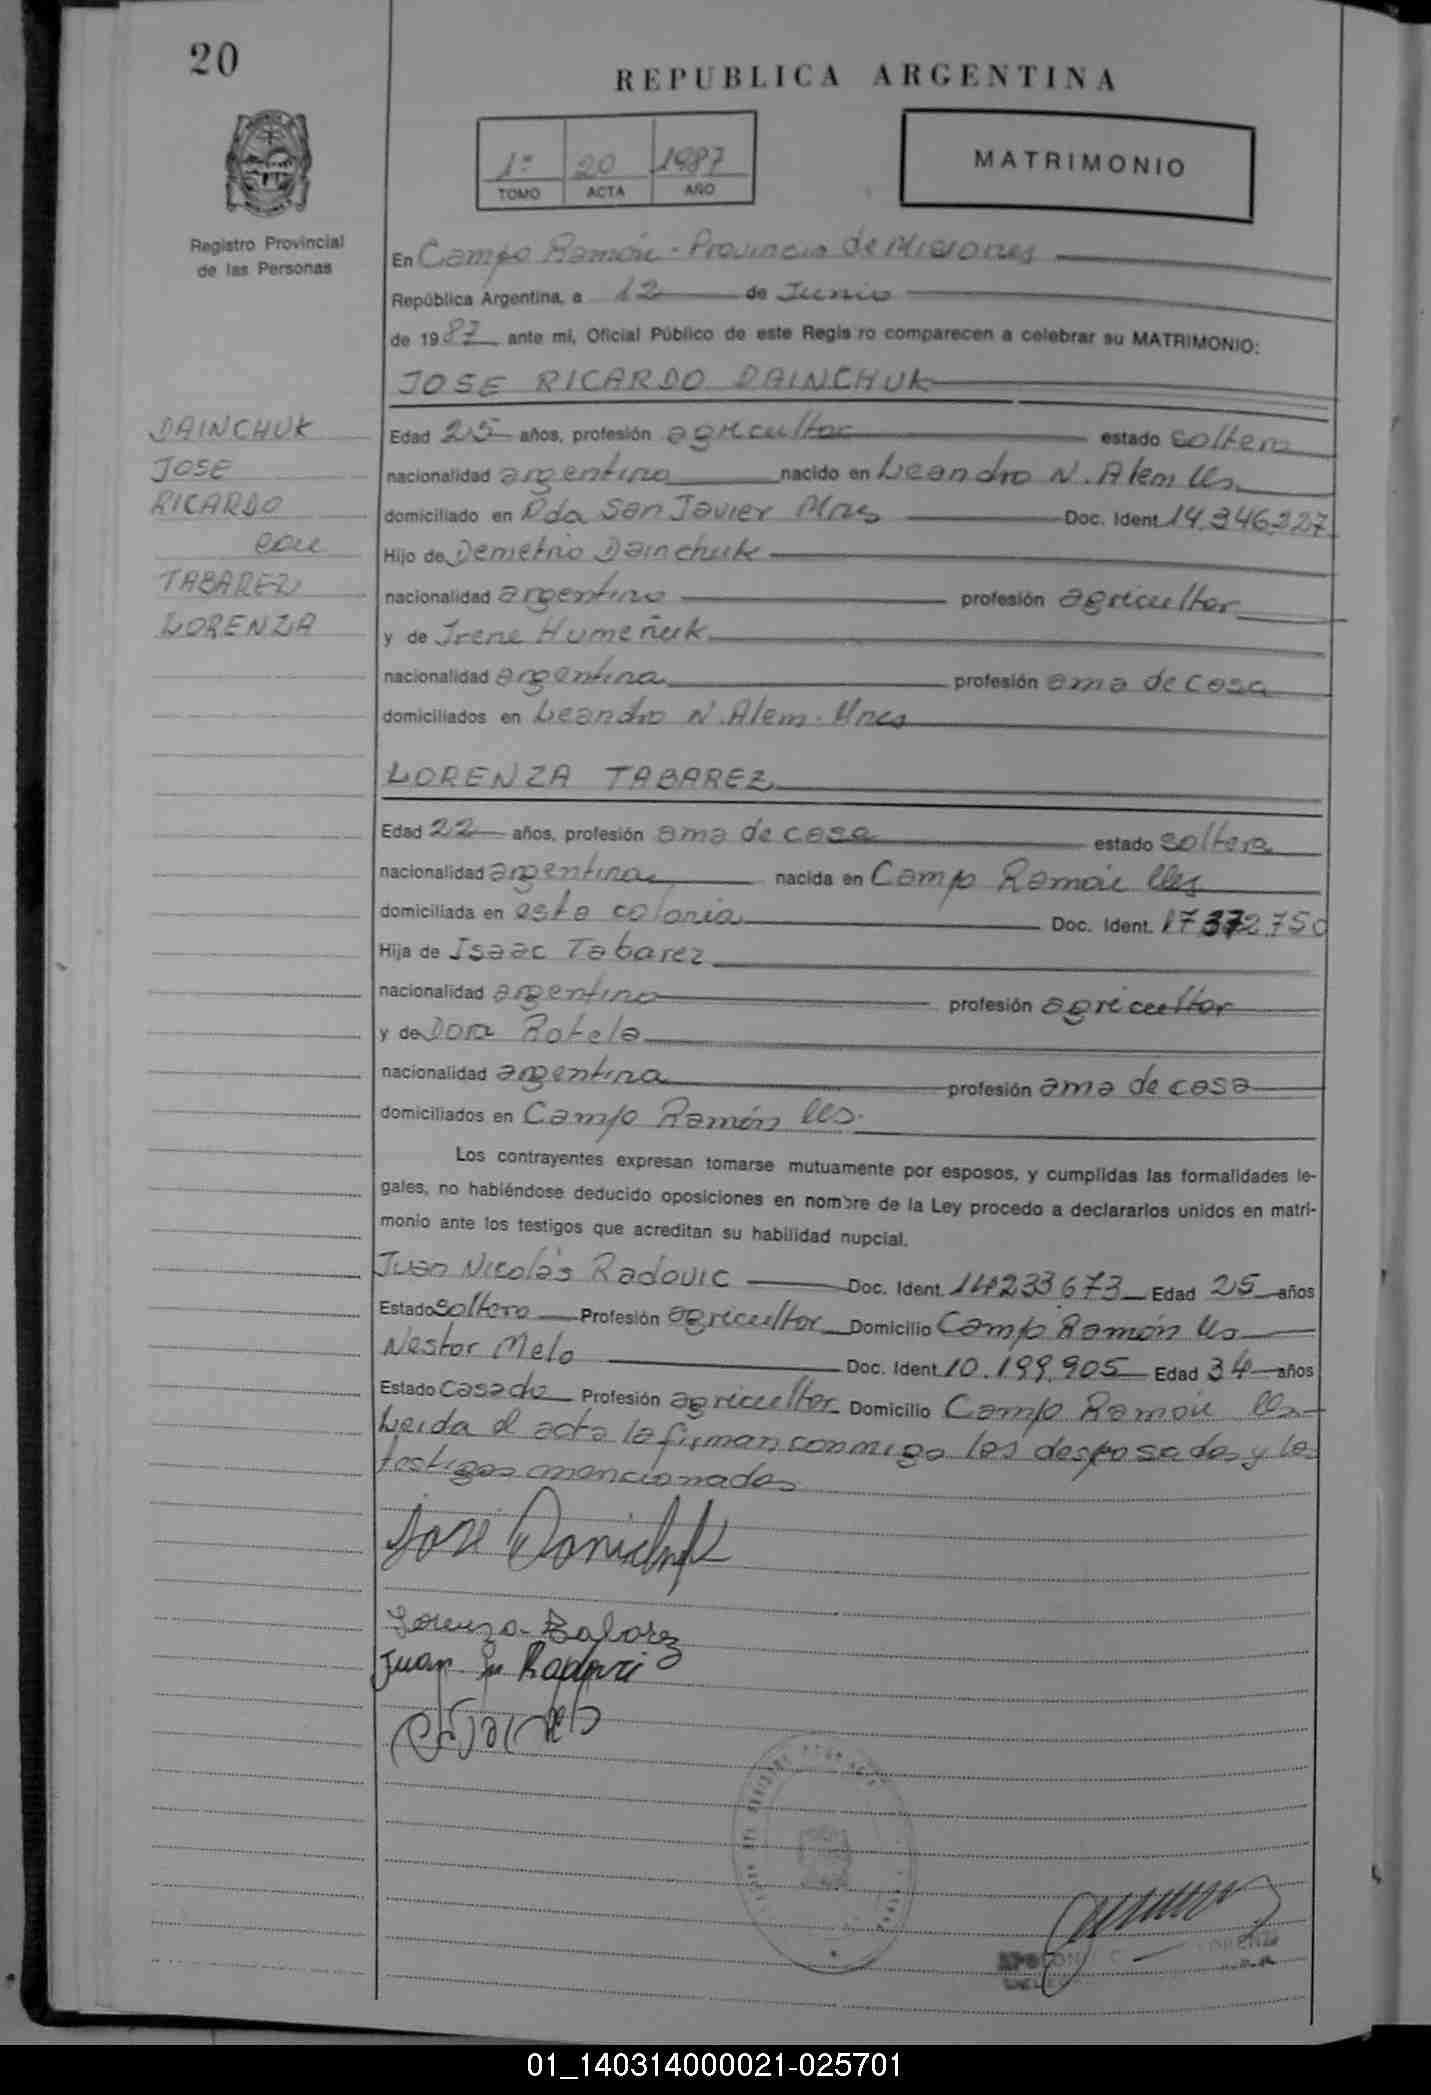 20
REPUBLICA ARGENTINA
1º 20 1987
TOMO ACTA AÑO
MATRIMONIO
Registro Provincial
de las Personas
En Campo Ramón - Provincia de Misiones
República Argentina, a 12 de Junio
de 1987 ante mi, Oficial Público de este Regis ro comparecen a celebrar su MATRIMONIO:
JOSE RICARDO DAINCHUK
DAINCHUK
JOSE
RICARDO
con
TABAREZ
LORENZA
Edad 25 años, profesión agricultor estado soltero
nacionalidad argentino nacido en Leandro N. Alem Ms
domiciliado en Pda San Javier Mnes Doc. Ident 14.346.227
Hijo de Demetrio Dainchuk
nacionalidad argentino profesión agricultor
y de Irene Humeñuk
nacionalidad argentina profesión ama de casa
domiciliados en Leandro N. Alem. Mnes
LORENZA TABAREZ
Edad 22 años, profesión ama de casa estado soltera
nacionalidad argentina nacida en Campo Ramón Ms
domiciliada en esta colonia Doc. Ident. 17.372.750
Hija de Isaac Tabarez
nacionalidad argentino profesión agricultor
y de Dora Rotela
nacionalidad argentina profesión ama de casa
domiciliados en Campo Ramón Ms.
Los contrayentes expresan tomarse mutuamente por esposos, y cumplidas las formalidades le-
gales, no habiéndose deducido oposiciones en nombre de la Ley procedo a declararlos unidos en matri-
monio ante los testigos que acreditan su habilidad nupcial.
Juan Nicolás Radovic Doc. Ident. 14233673 Edad 25 años
Estado soltero Profesión agricultor Domicilio Campo Ramón Ms
Nestor Melo Doc. Ident 10.199.905 Edad 34 años
Estado casado Profesión agricultor Domicilio Campo Ramón Ms
Leida el acta la firman conmigo los desposados y los
testigos mencionados
José Danichuk
Lorenza Tabarez
Juan N Radovic
01_140314000021-025701